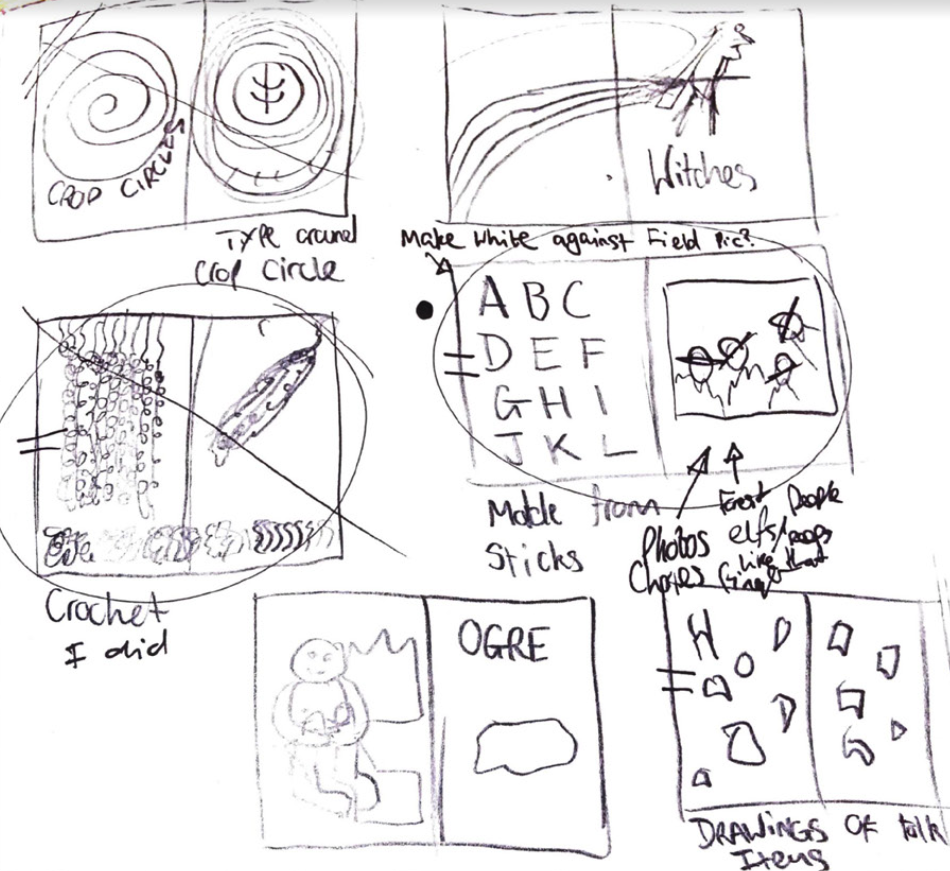 CROP CIRCLES
Type around
Crop Circle
Witches
Make white against Field Pic?
A B C
D E F
G H I
J K L
Made from
Sticks
Photos
Forest People
elfs/
like that
Crochet
I did
OGRE
DRAWINGS OF
Items